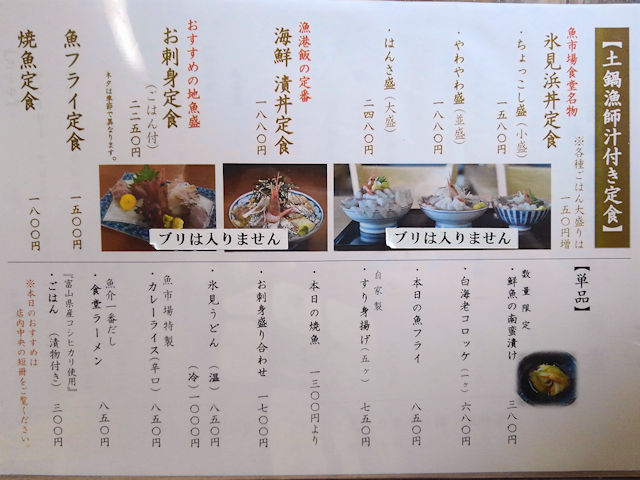 【土鍋漁師汁付き定食】
※各種ごはん大盛りは
一五〇円増
魚市場食堂名物
氷見浜丼定食
・ちょっこし盛(小盛)
一五八〇円
・やわやわ盛(並盛)
一八八〇円
・はんさ盛(大盛)
二四八〇円
漁港飯の定番
海鮮 漬丼定食
一八八〇円
おすすめの地魚盛
お刺身定食
(ごはん付)
二二五〇円
ネタは季節で異なります。
魚フライ定食
一五〇〇円
焼魚定食
一八〇〇円
ブリは入りません
ブリは入りません
【単品】
数量限定
・鮮魚の南蛮漬け
三八〇円
・白海老コロッケ(一ヶ)
六八〇円
・本日の魚フライ
八五〇円
自家製
・すり身揚げ(五ヶ)
七五〇円
・本日の焼魚
一三〇〇円より
・お刺身盛り合わせ
一七〇〇円
・氷見うどん
(温)八五〇円
(冷)一〇〇〇円
魚市場特製
・カレーライス(辛口)
八五〇円
魚介一番だし
・食堂ラーメン
八五〇円
『富山県産コシヒカリ使用』
・ごはん(漬物付き)
三〇〇円
※本日のおすすめは
店内中央の短冊をご覧ください。